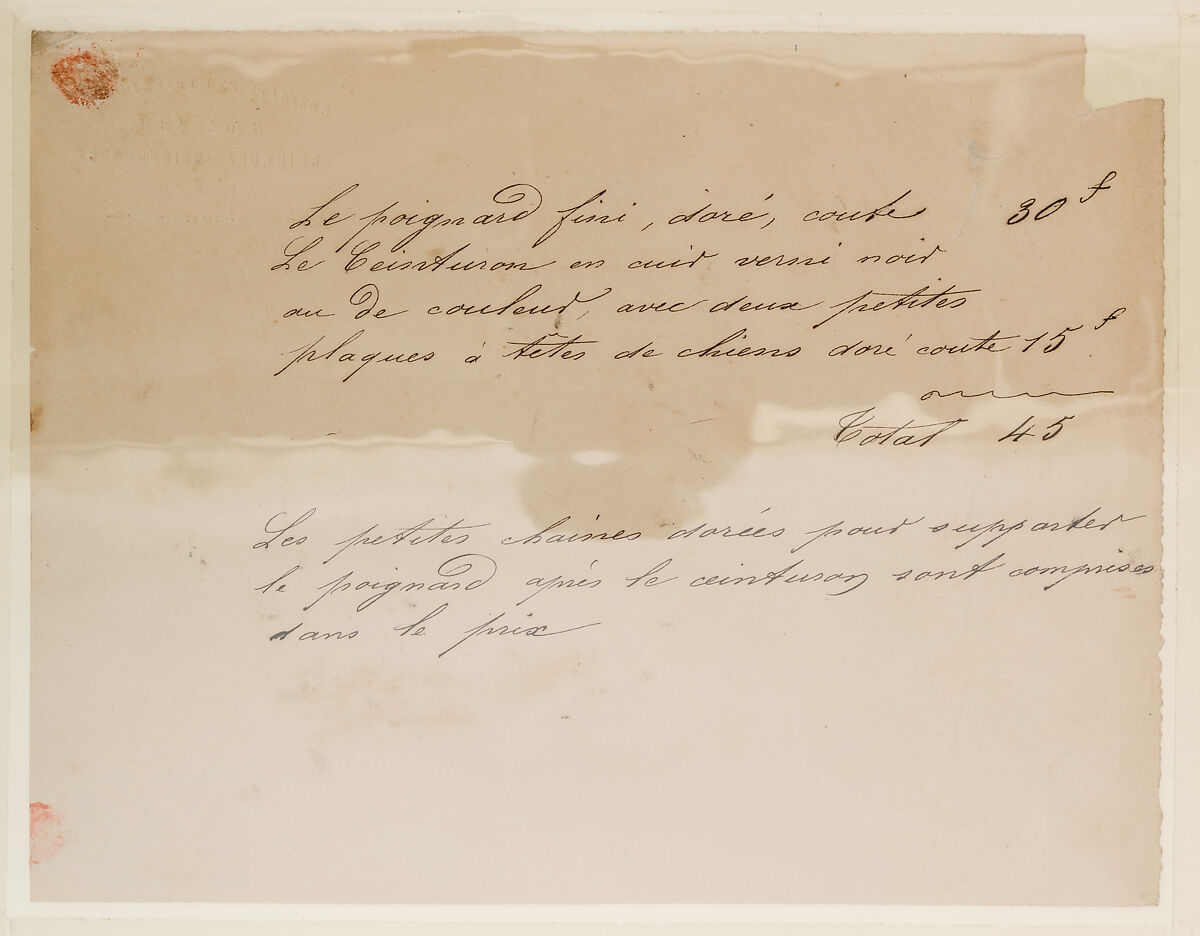 Le poignard fini, doré, coute 30 f
Le Ceinturon en cuir verni noir
ou de couleur, avec deux petites
plaques à têtes de chiens doré coute 15 f
Total 45
Les petites chaines dorées pour supporter
le poignard après le ceinturon sont comprises
dans le prix